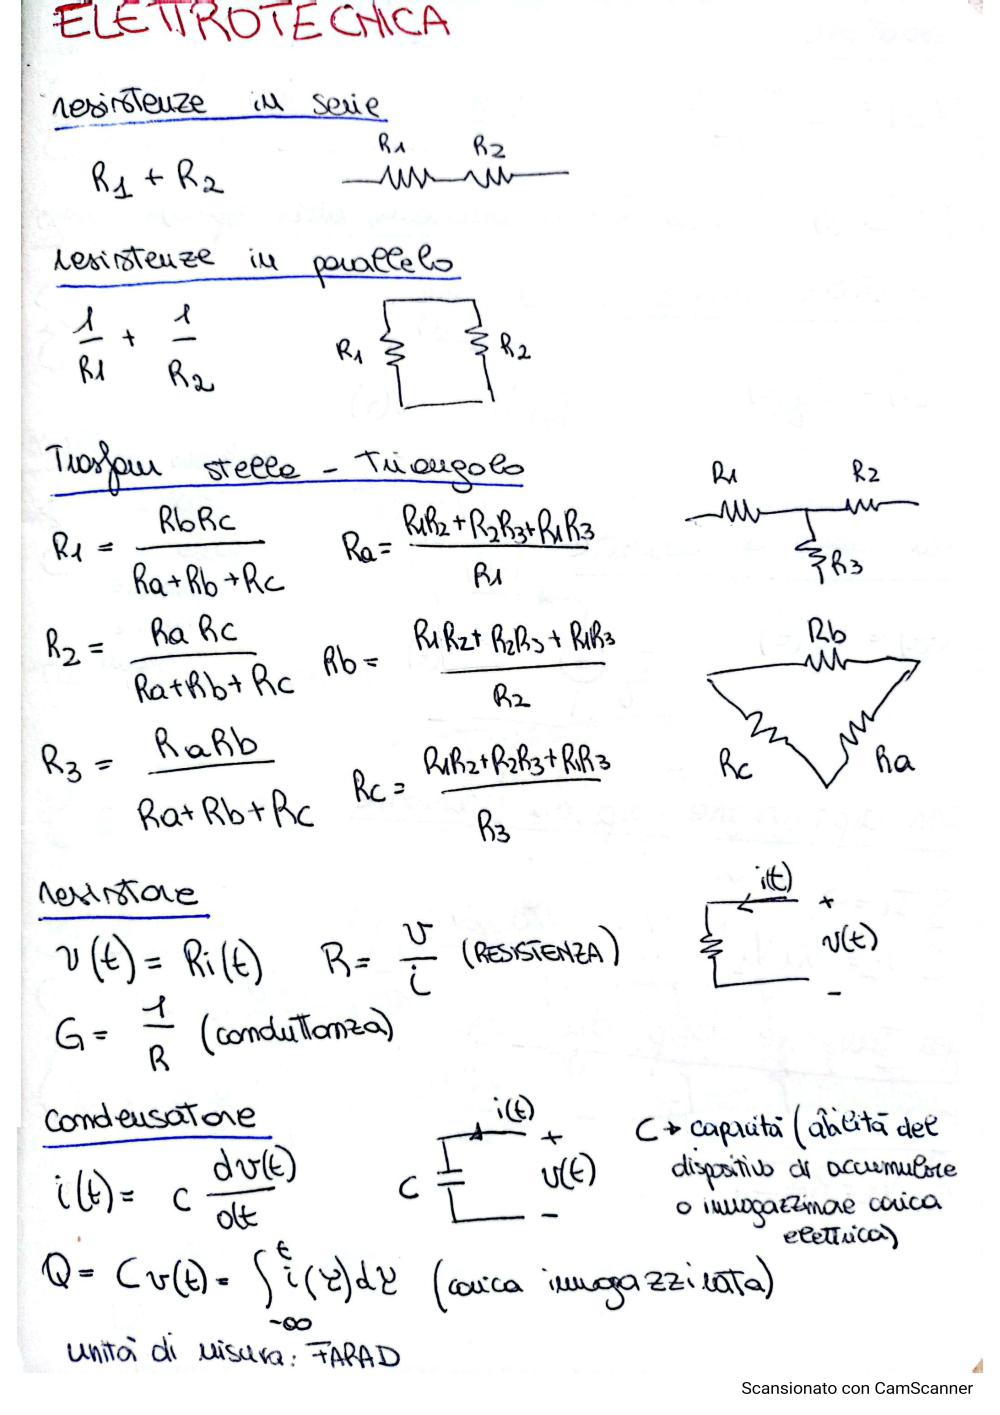 ELETTROTECNICA
resistenze in serie
R1 + R2
R1 R2
resistenze in parallelo
1/R1 + 1/R2
R1 R2
Trasfom stella - Triangolo
R1 = RbRc / Ra+Rb+Rc
Ra = R1R2+R2R3+R1R3 / R1
R1 R2 R3
R2 = Ra Rc / Ra+Rb+Rc
Rb = R1R2+R2R3+R1R3 / R2
R3 = RaRb / Ra+Rb+Rc
Rc = R1R2+R2R3+R1R3 / R3
Rb
Rc Ra
resistore
v(t) = Ri(t) R = v/i (RESISTENZA)
i(t) + v(t) -
G = 1/R (conduttanza)
condensatore
i(t) = C dv(t)/dt
i(t) + C v(t) -
C → capacità (abilità del
dispositivo di accumulare
o immagazzinare carica
elettrica)
Q = Cv(t) = ∫_{-∞}^{t} i(τ)dτ (carica immagazzinata)
unità di misura: FARAD
Scansionato con CamScanner